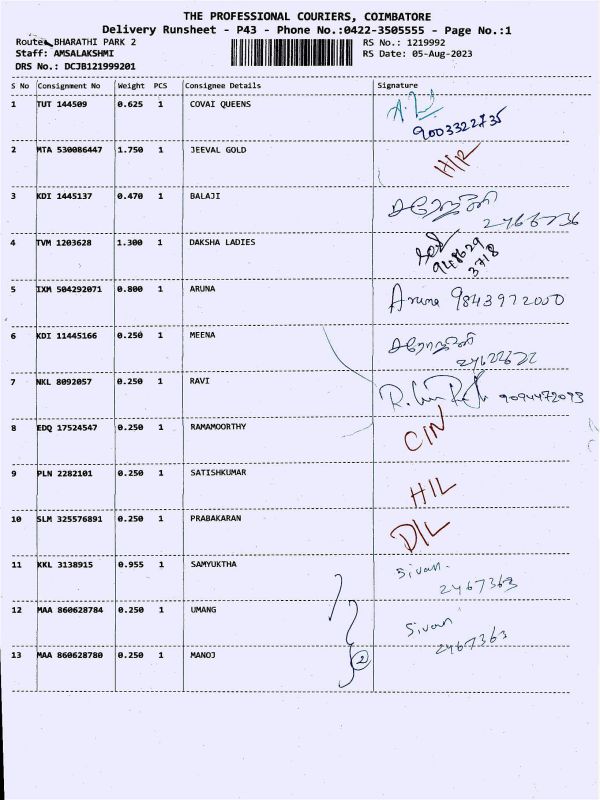 THE PROFESSIONAL COURIERS, COIMBATORE
Delivery Runsheet - P43 - Phone No.:0422-3505555 - Page No.:1
Route: BHARATHI PARK 2 RS No.: 1219992
Staff: AMSALAKSHMI RS Date: 05-Aug-2023
DRS No.: DCJB121999201
S No Consignment No Weight PCS Consignee Details Signature
1 TUT 144509 0.625 1 COVAI QUEENS
9003322735
2 MTA 530086447 1.750 1 JEEVAL GOLD H/R
3 KDI 1445137 0.470 1 BALAJI
4 TVM 1203628 1.300 1 DAKSHA LADIES
948629
3718
5 IXM 504292071 0.800 1 ARUNA Aruna 9843972000
6 KDI 11445166 0.250 1 MEENA
7 NKL 8092057 0.250 1 RAVI 9094472093
8 EDQ 17524547 0.250 1 RAMAMOORTHY C/N
9 PLN 2282101 0.250 1 SATISHKUMAR H/L
10 SLM 325576891 0.250 1 PRABAKARAN D/L
11 KKL 3138915 0.955 1 SAMYUKTHA Sivan.
2467363
12 MAA 860628784 0.250 1 UMANG Sivan
2467363
13 MAA 860628780 0.250 1 MANOJ 2